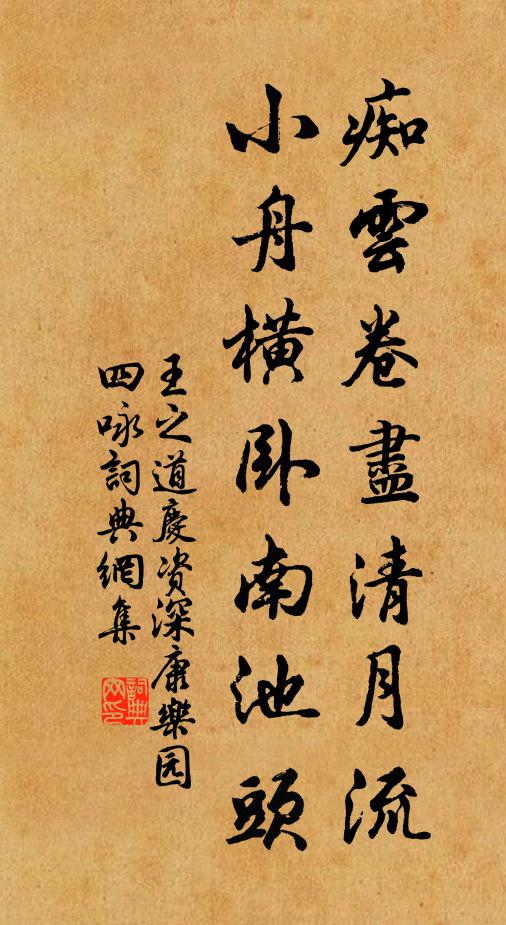 痴雲卷盡清月流
小舟横卧南池頭
王之道慶資深康樂园
四咏詞典網集
詞典
网印